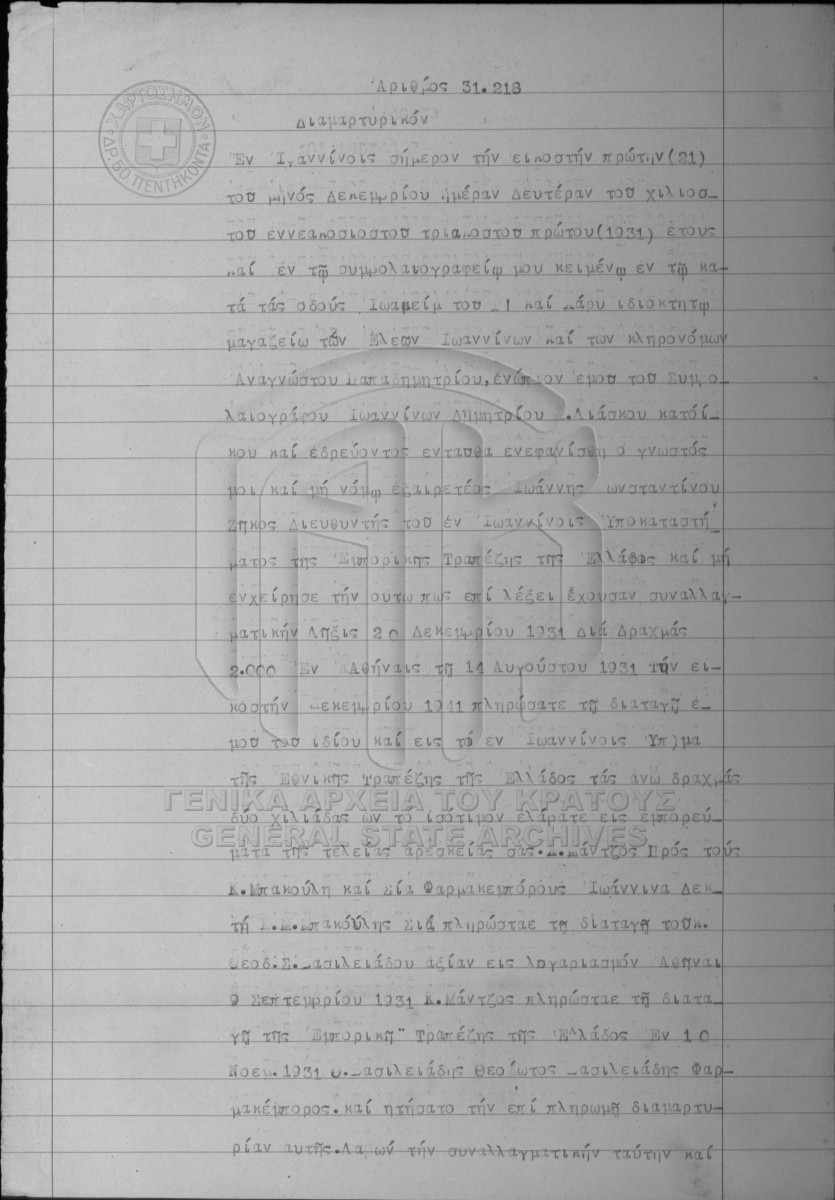 Ἀριθμός 31.218
ΧΑΡΤΟΣΗΜΟΝ
ΔΡ.50.ΠΕΝΤΗΚΟΝΤΑ
Διαμαρτυρικόν
Ἐν Ἰωαννίνοις σήμερον τήν εικοστήν πρώτην(21)
του μηνός Δεκεμβρίου ἡμέραν Δευτέραν του χιλιοσ-
του εννεακοσιοστου τριακοστου πρώτου(1931) έτους
καί ἐν τῷ συμβολαιογραφείῳ μου κειμένῳ ἐν τῷ κα-
τά τάς οδούς Ἰωακείμ του καί ιδιοκτητῳ
μαγαζείω τῶν Ελεῶν Ἰωαννίνων καί των κληρονόμων
Ἀναγνώστου Παπαδημητρίου,ἐνώπιον ἐμου του Συμβο-
λαιογράφου Ἰωαννίνων Δημητρίου .Λιάσκου κατοί-
κου καί εδρεύοντος ενταυθα ενεφανίσθη ο γνωστός
μοι καί μή νόμῳ εξαιρετέος Ἰωάννης ωνσταντίνου
Ζηκος Διευθυντής του ἐν Ἰωαννίνοις Ὑποκαταστή
ματος της Ἐμπορικης Τραπέζης της Ἑλλάδος καί μή
ενχείρησε τήν ούτω πως επί λέξει ἔχουσαν συναλλαγ-
ματικήν Ληξις 20 Δεκεμβρίου 1931 Διά Δραχμάς
2.000 Ἐν Ἀθήναις τῃ 14 Αυγούστου 1931 Τήν ει-
κοστήν εκεμβρίου 1911 πληρώσατε τῃ διαταγῃ ἐ-
μου του ιδίου καί εις τό ἐν Ἰωαννίνοις Ὑπ)μα
τῆς Ἐθνικης Τραπέζης τῆς Ἑλλάδος τάς άνω δραχμάς
δύο χιλιάδας ὧν τό ισότιμον ελάβατε εις εμπορεύ-
ματα της τελείας αρεσκείας σας. .Μάντζος Πρός τούς
Κ.Μπακούλη καί Σία Φαρμακεμπόρους Ἰωάννινα Δεκ-
τή .Μπακούλης Σιά πληρώσταε τῃ διαταγῃ τουκ.
Θεοδ.Σ. ασιλειάδου αξίαν εις λογαριασμόν Ἀθηναι
9 Σεπτεμβρίου 1931 Κ.Μάντζος πληρώσταε τῃ διατα-
γῃ τῆς Ἐμπορικη" Τραπέζης τῆς Ἑλλάδος Ἐν 10
Νοεμ.1931 Θ. ασιλειάδης Θεόζωτος ασιλειάδης Φαρ-
μακέμπορος.καί ητήσατο τήν επί πληρωμῃ διαμαρτυ-
ρίαν αυτῆς.Λαβών τήν συναλλαγματικήν ταύτην καί
ΓΕΝΙΚΑ ΑΡΧΕΙΑ ΤΟΥ ΚΡΑΤΟΥΣ
GENERAL STATE ARCHIVES